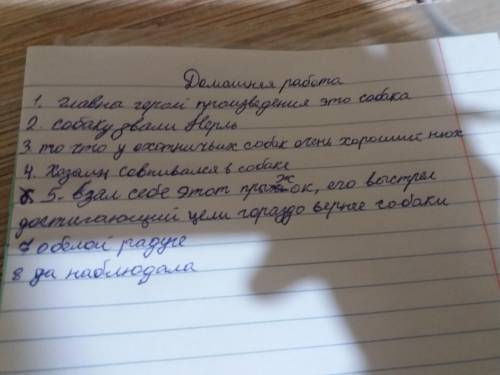 Домашняя работа
1. главна герой произведения это собака
2. собаку звали Нерль
3. то что у охотничьих собак очень хороший нюх
4. Хозаин совпивался в собаке
5. взал себе этот прыжок, его выстрел
достигающий цели гораздо вернее собаки
7 о белой радуге
8 да наблюдала